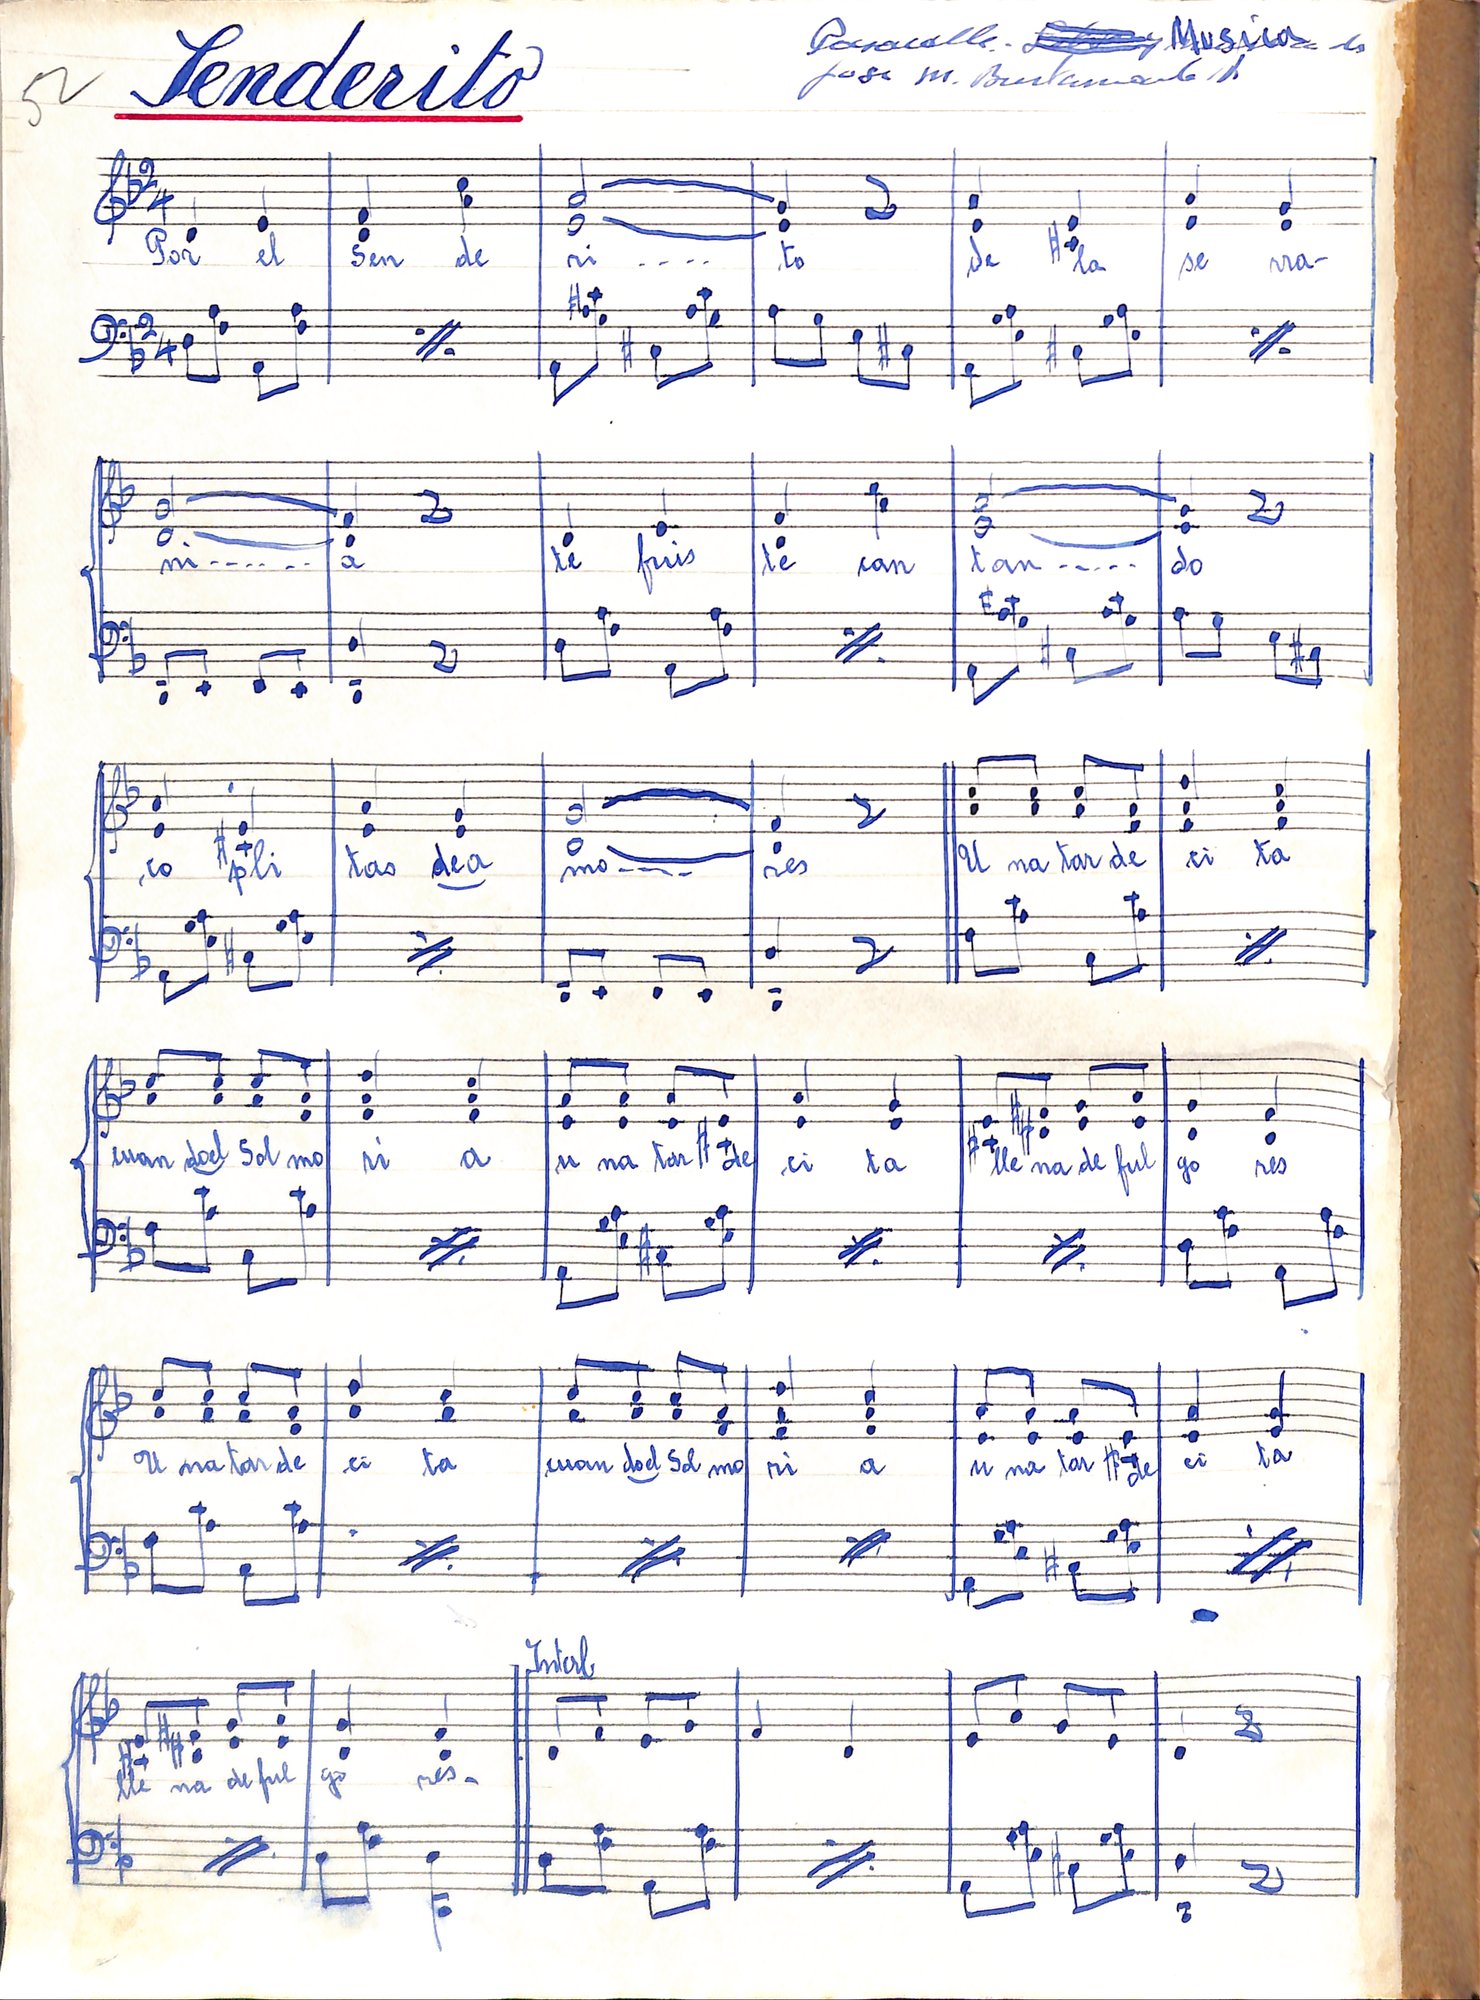 52
Senderito
Pasacalle - Musica de
Jose M. Bustamante
2 4
Por el Sen de ri .... to de la se rra-
2 4
ni ...... a te fuis te can tan ..... do
co pli tas dea mo---- res U na tar de ci ta
cuan doel Sol mo ri a u na tar de ci ta lle na de ful go res
U na tar de ci ta cuan doel Sol mo ri a u na tar de ci ta
Interl
lle na de ful go res-